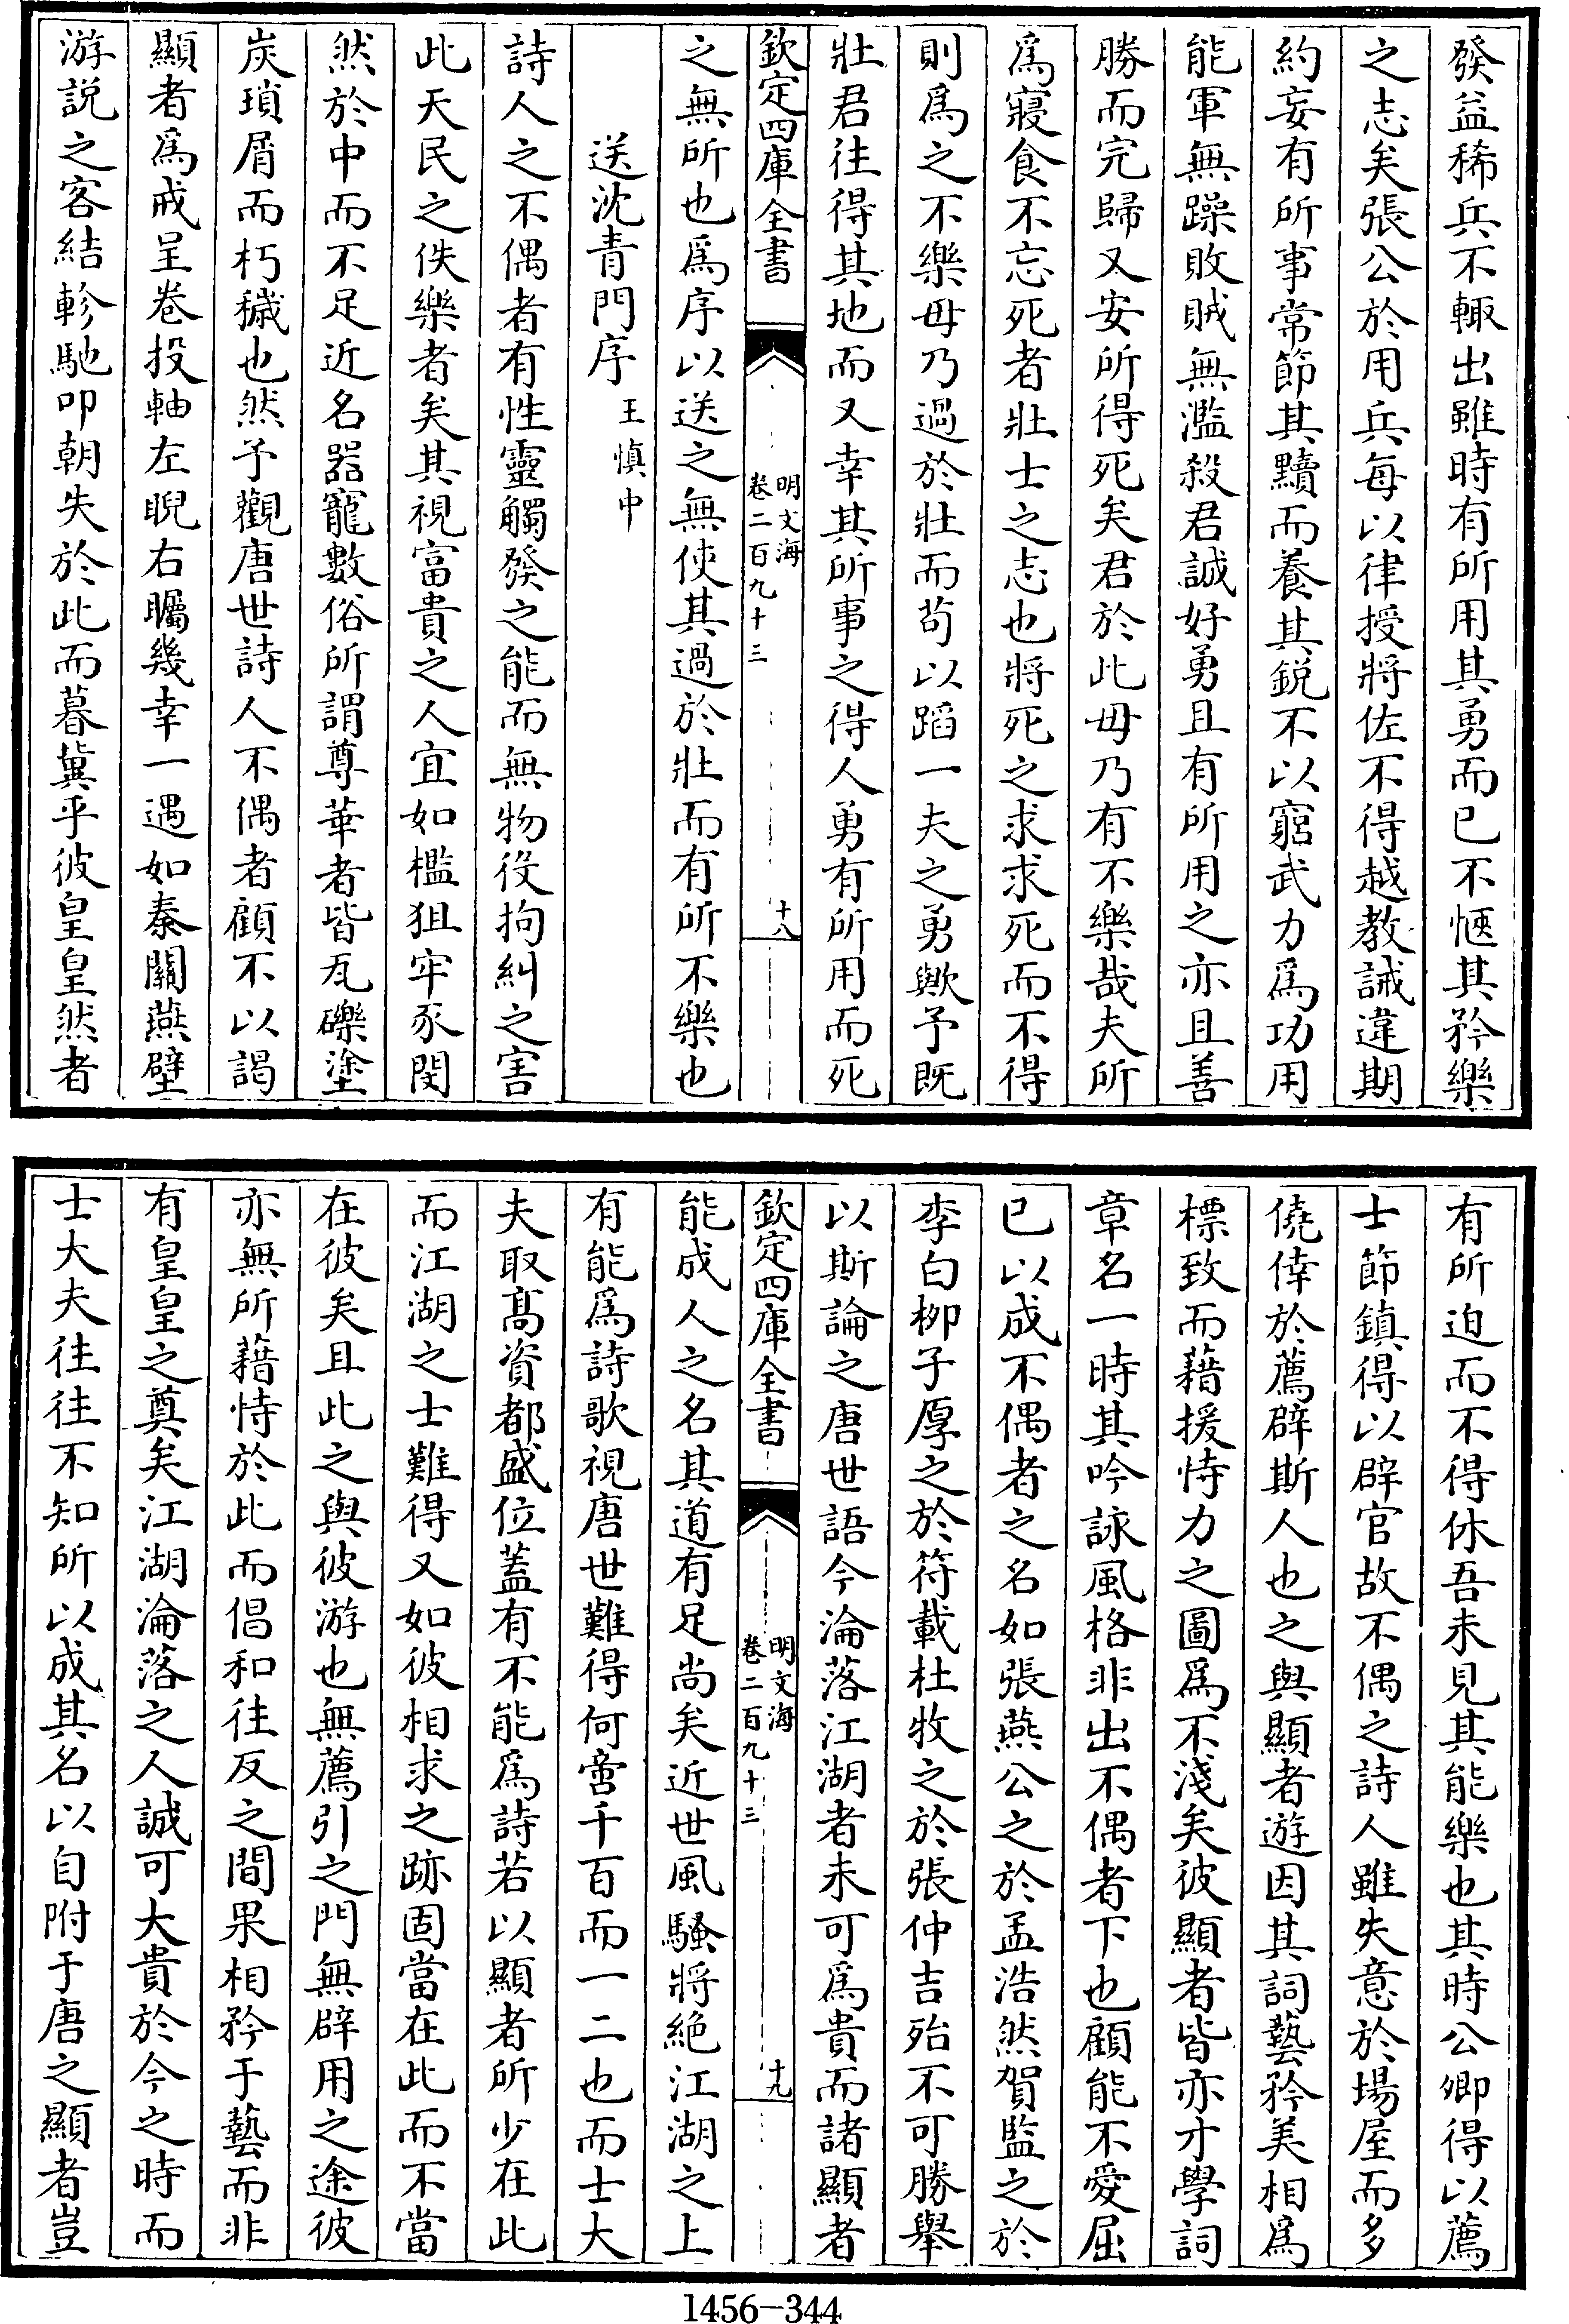 發益稀兵不輙出雖時有所用其勇而已不愜其矜樂
之志矣張公於用兵每以律授將佐不得越教誡違期
約妄有所事常節其黷而養其鋭不以窮武力爲功用
能軍無躁敗賊無濫殺君誠好勇且有所用之亦且善
勝而完歸又安所得死矣君於此毋乃有不樂哉夫所
爲寢食不忘死者壯士之志也將死之求求死而不得
則爲之不樂毋乃過於壯而苟以蹈一夫之勇歟予既
壯君往得其地而又幸其所事之得人勇有所用而死
欽定四庫全書
明文海
卷二百九十三
十八
之無所也爲序以送之無使其過於壯而有所不樂也
送沈青門序 王慎中
詩人之不偶者有性靈觸發之能而無物役拘糾之害
此天民之佚樂者矣其視富貴之人宜如檻狙牢豕閔
然於中而不足近名器寵數俗所謂尊華者皆瓦礫塗
炭瑣屑而朽穢也然予觀唐世詩人不偶者顧不以謁
顯者爲戒呈卷投軸左睨右矚幾幸一遇如秦關燕壁
游説之客結軫馳叩朝失於此而暮冀乎彼皇皇然者
有所迫而不得休吾未見其能樂也其時公卿得以薦
士節鎮得以辟官故不偶之詩人雖失意於場屋而多
僥倖於薦辟斯人也之與顯者遊因其詞藝矜美相爲
標致而藉援恃力之圖爲不淺矣彼顯者皆亦才學詞
章名一時其吟詠風格非出不偶者下也顧能不愛屈
已以成不偶者之名如張燕公之於孟浩然賀監之於
李白栁子厚之於符載杜牧之於張仲吉殆不可勝舉
以斯論之唐世語今淪落江湖者未可爲貴而諸顯者
欽定四庫全書
明文海
卷二百九十三
十九
能成人之名其道有足尚矣近世風騷將絶江湖之上
有能爲詩歌視唐世難得何啻千百而一二也而士大
夫取髙資都盛位蓋有不能爲詩若以顯者所少在此
而江湖之士難得又如彼相求之跡固當在此而不當
在彼矣且此之與彼游也無薦引之門無辟用之途彼
亦無所藉恃於此而倡和往反之間果相矜于藝而非
有皇皇之冀矣江湖淪落之人誠可大貴於今之時而
士大夫往往不知所以成其名以自附于唐之顯者豈
1456-344